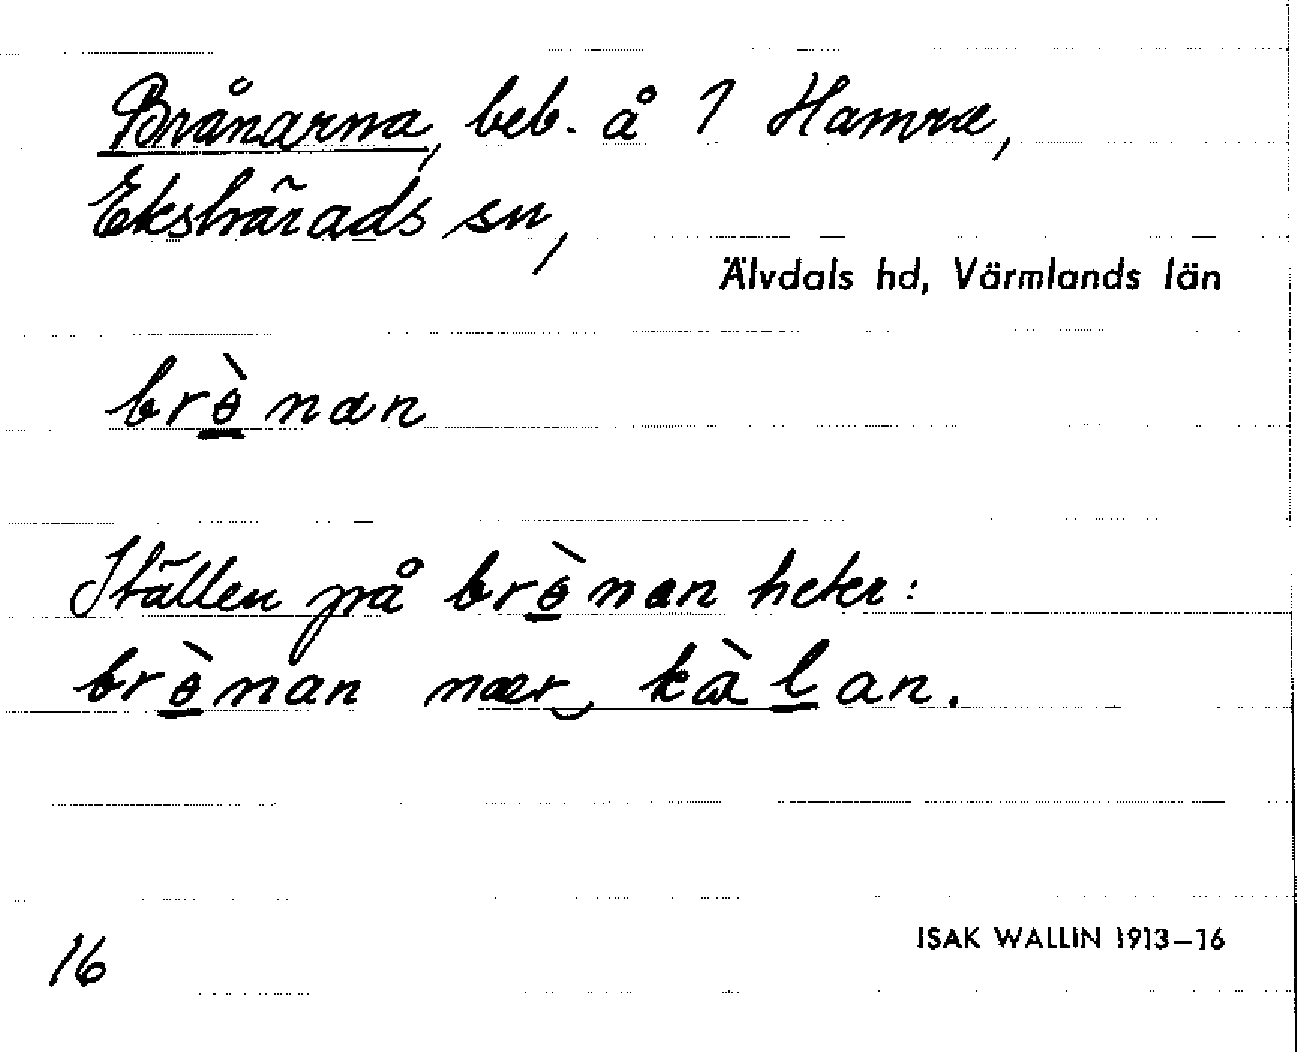 Brånarna, beb. å 1 Hamra,
Ekshärads sn,
Älvdals hd, Värmlands län
brɵ̀nan
Ställen på brɵ̀nan heter:
brɵ̀nan nær‿ kàlan.
16
ISAK WALLIN 1913–16